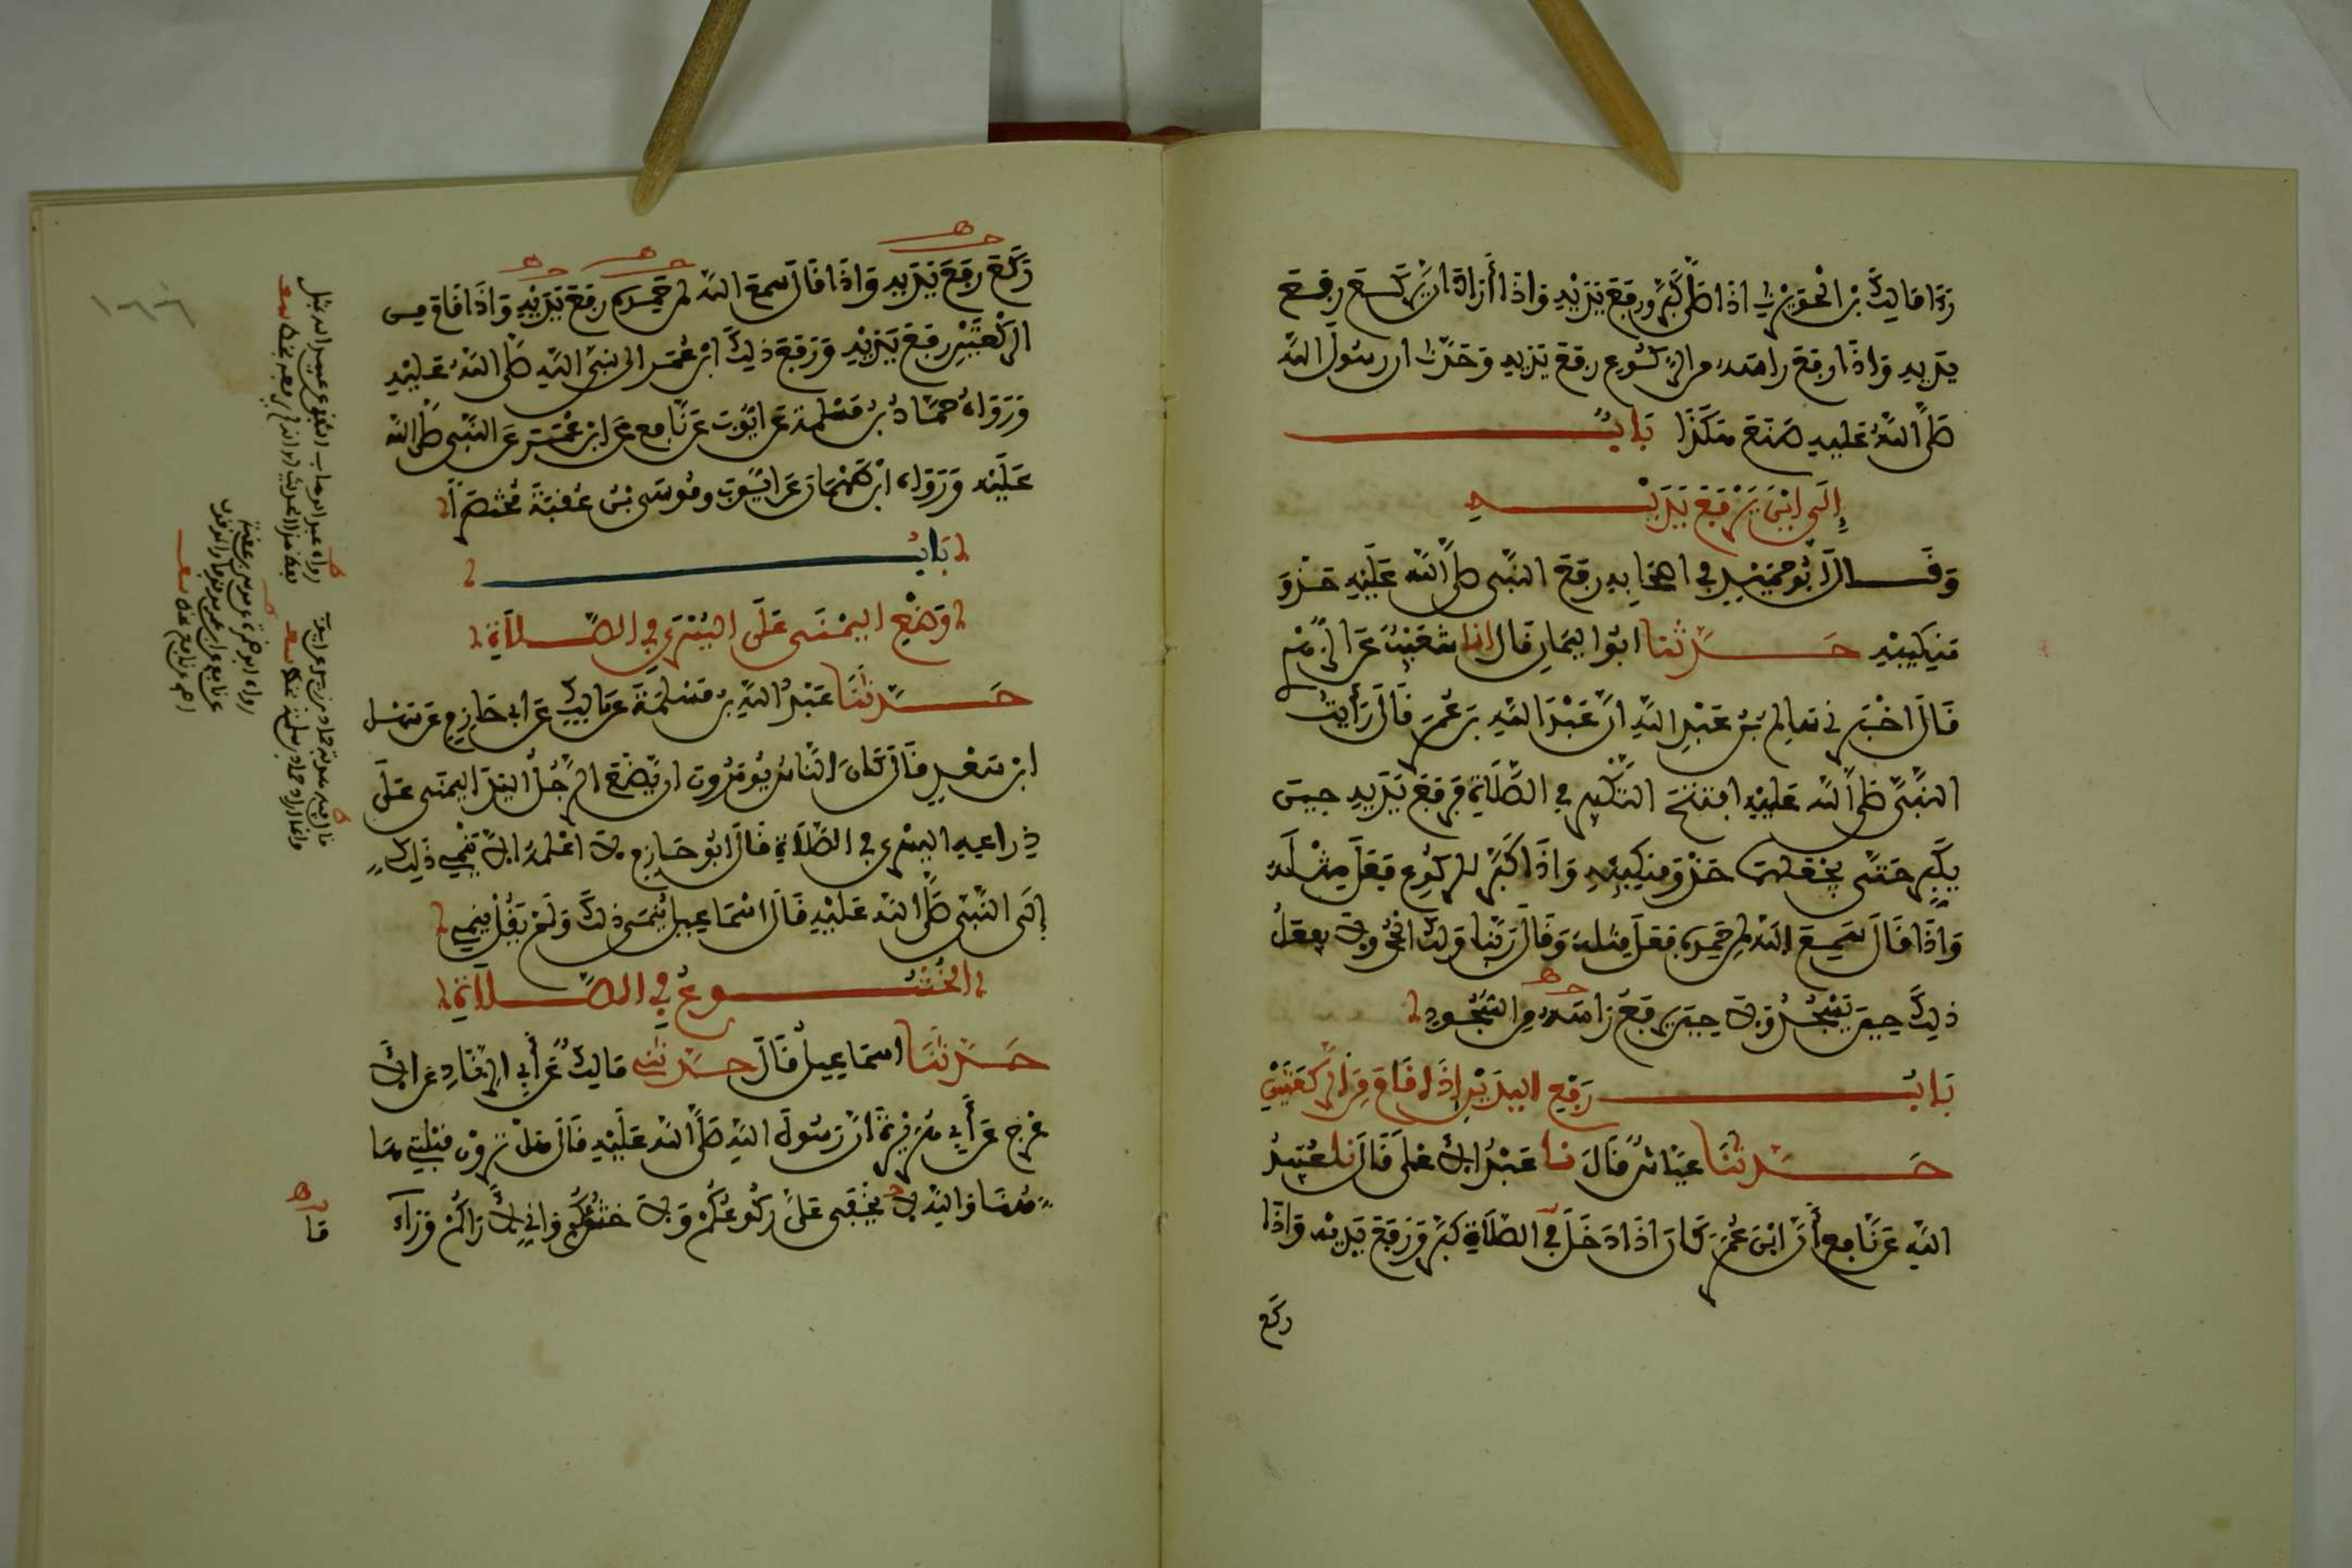 رءا مالك بن الحويرث اذا صلى كبر ورفع يديه واذا أراد ان يركع رفع
يديه واذا رفع راسه من الركوع رفع يديه وحدث ان رسول الله
صلى الله عليه صنع هكذا باب
إلى اين يرفع يديه
وقال أبو حميد في اصحابه رفع النبي صلى الله عليه حذو
منكبيه حدثنا ابو اليمان قال انا شعيب عن الزهري
قال اخبرني سالم بن عبد الله ان عبد الله بن عمر قال رأيت
النبي صلى الله عليه افتتح التكبير في الصلاة فرفع يديه حين
يكبر حتى يجعلهما حذو منكبيه واذا كبر للركوع فعل مثله
واذا قال سمع الله لمن حمده فعل مثله وقال ربنا ولك الحمد ولا يفعل
ذلك حين يسجد ولا حين يرفع راسه من السجود
باب رفع اليدين إذا قام من الركعتين
حدثنا عياش قال نا عبد الاعلى قال نا عبيد
الله عن نافع أن ابن عمر كان اذا دخل في الصلاة كبر ورفع يديه واذا
ركع
ركع رفع يديه واذا قال سمع الله لمن حمده رفع يديه واذا قام من
الركعتين رفع يديه ورفع ذلك ابن عمر الى نبي الله صلى الله عليه
ورواه حماد بن سلمة عن ايوب عن نافع عن ابن عمر عن النبي صلى الله
عليه ورواه ابن طهمان عن ايوب وموسى بن عقبة مختصرا
باب
وضع اليمنى على اليسرى في الصلاة
حدثنا عبد الله بن مسلمة عن مالك عن ابي حازم عن سهل
ابن سعد قال كان الناس يؤمرون ان يضع الرجل اليد اليمنى على
ذراعه اليسرى في الصلاة قال ابو حازم لا اعلمه الا ينمي ذلك
إلى النبي صلى الله عليه قال اسماعيل ينمى ذلك ولم يقل ينمي
الخشوع في الصلاة
حدثنا اسماعيل قال حدثني مالك عن أبي الزناد عن الا
عرج عن أبي هريرة أن رسول الله صلى الله عليه قال هل ترون قبلتي ها
هنا والله لا يخفى علي ركوعكم ولا خشوعكم واني لأراكم وراء